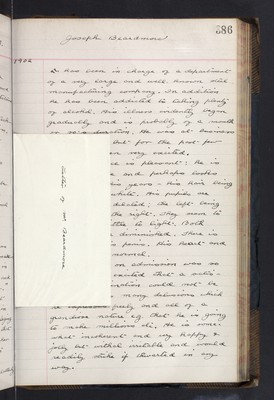 386
Joseph Beardmore
1902
He has been in charge of a department
of a very large and well known steel
manufacturing company. In addition
he has been addicted to taking plenty
of alcohol. His illness evidently began
gradually and is probably of a month
or so's duration. He was at business
but for the past few
very excited.
is pleasant: he is
and perhaps looks
his years - his hair being
white. His pupils are
dilated; the left being
the right. They move to
little to light. Both
diminished. There is
paresis. His heart and
normal.
on admission was so
excited that a satis-
could not be
many delusions which
he expresses freely and all of a
grandiose nature eg that he is going
to make millions etc. He is some-
what incoherent and very happy &
jolly but withal irritable and would
readily strike if thwarted in any
way.
Letter of Mr Beardmore